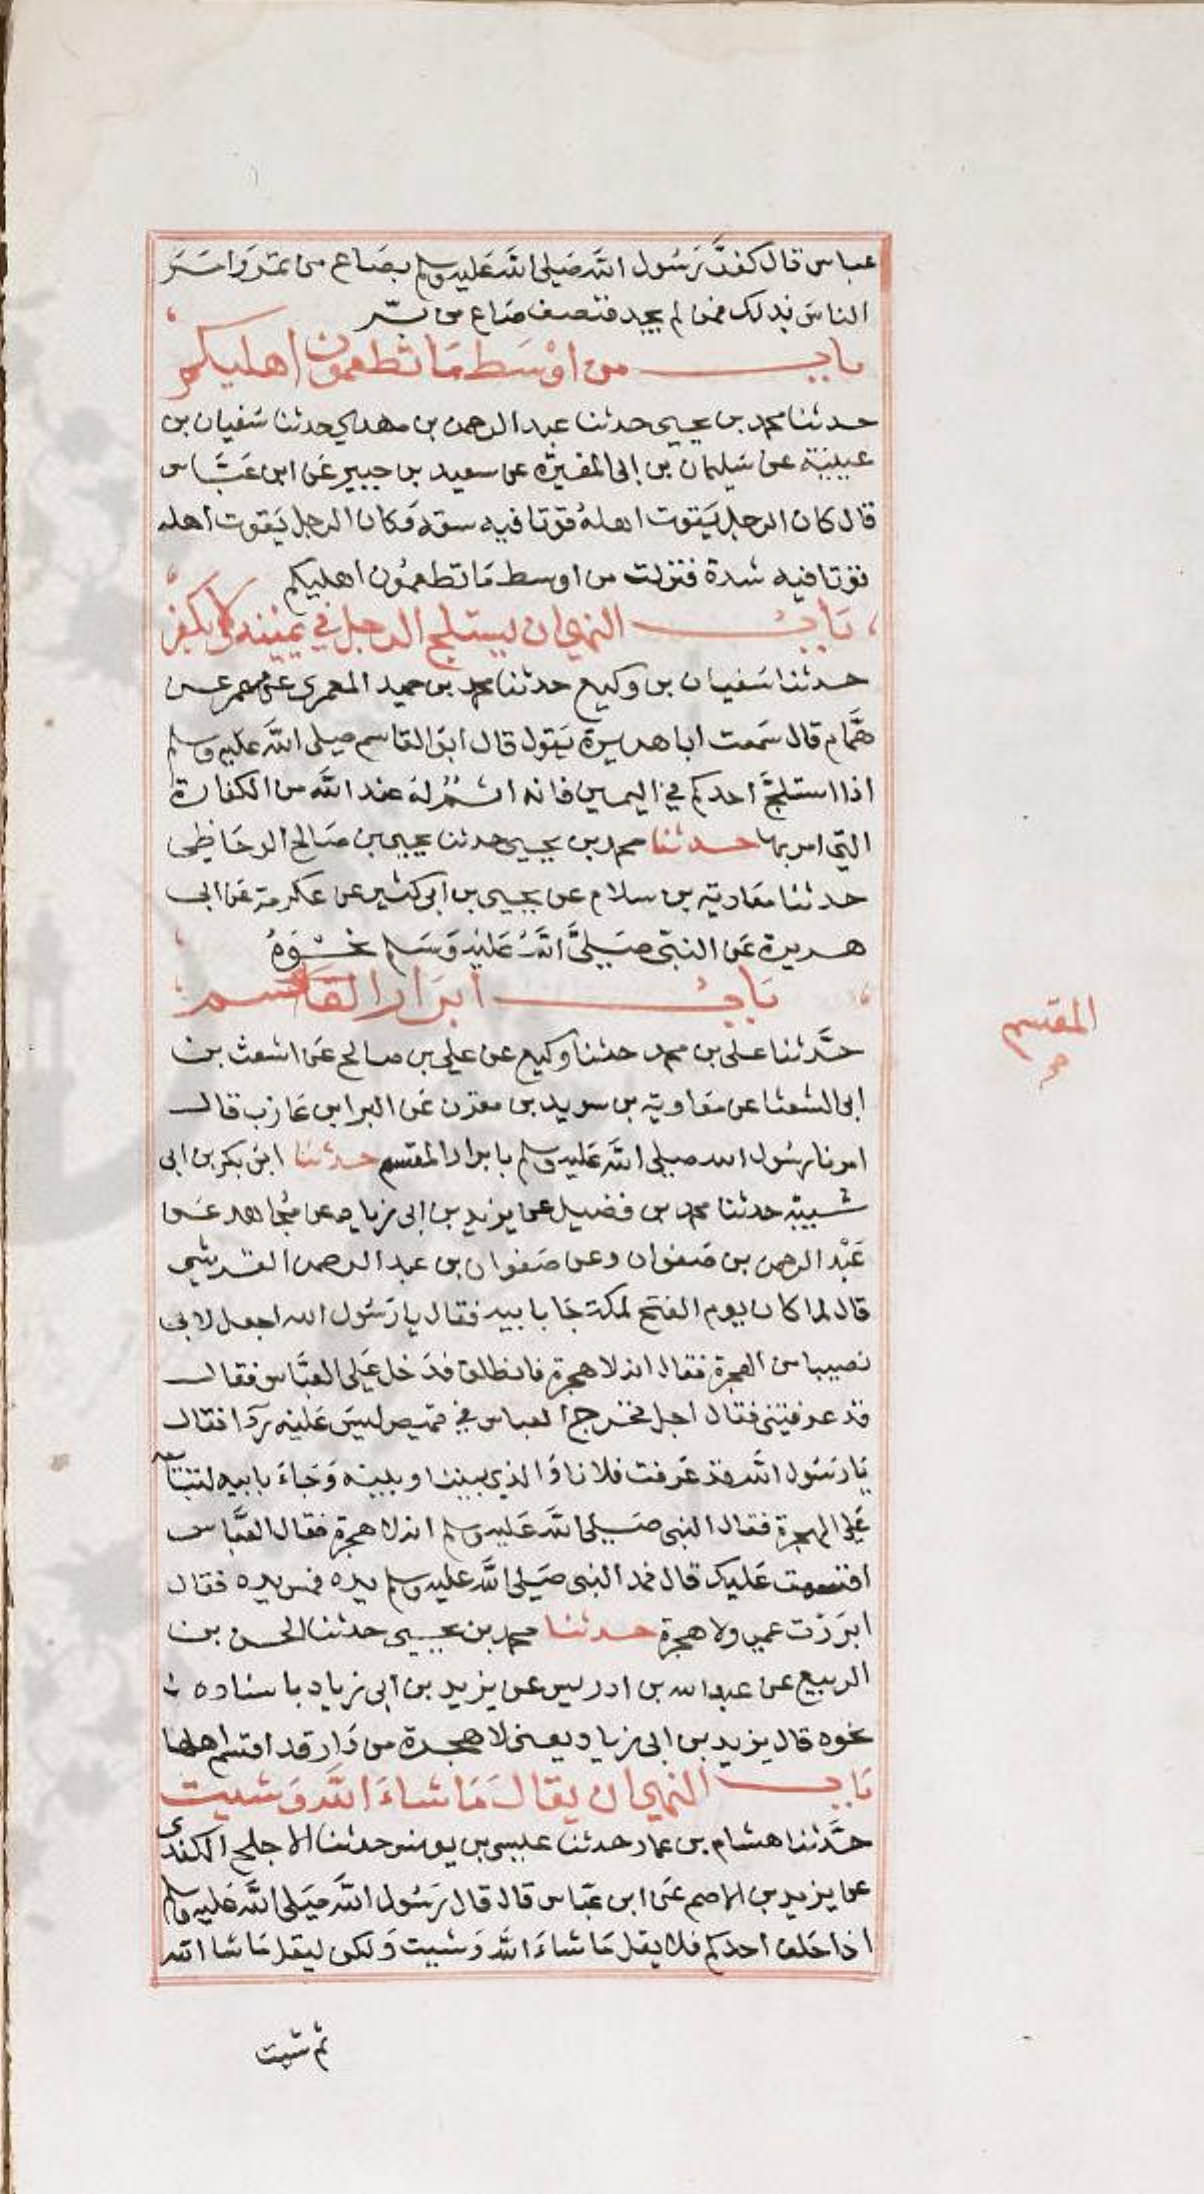 عباس قال كفَّر رَسُول الله صَلى الله عَليه وسلم بصَاع من تمر وَامَرَ
الناسَ بذلك فمن لم يجد فنصف صَاع من بُرّ
باب من اوْسَط مَا تطعمون اهليكم
حدثنا محمد بن يحيى حدثنا عبد الرحمن بن مهدي حدثنا سُفيان بن
عيينة عن سُليمان بن ابي المغيرة عن سعيد بن جبير عَن ابن عَبَّاس
قال كان الرجل يَقوت اهلهُ قوتا فيه سعة وَكان الرجل يَقوت اهله
قوتا فيه شدة فنزلت من اوسط مَا تطعمُون اهليكم
بَابُ النهي ان يستلج الرجل في يمينه ولا يكفر
حدثنا سُفيان بن وكيع حدثنا محمد بن حميد المعمري عن معمر عن
هَمَّام قال سَمعت ابا هريرة يَقول قال ابو القاسم صلى الله عليه وسلم
اذا استلجَّ احدكم في اليمين فانه اثمُ لهُ عند الله من الكفارة
التي امر بها حدثنا محمد بن يحيى حدثنا يحيى بن صَالح الوحَاظي
حدثنا مَعَاوية بن سلام عن يحيى بن ابي كثير عن عكرمة عَن ابي
هريرة عَن النبي صَلىَّ اللهُ عَليْه وَسَلم نحْوَهُ
بَابُ ابرَار القَاسم
المقسم
صح
حدَّثنا علي بن محمد حدثنا وكيع عن علي بن صالح عَن اشعث بن
ابي الشعثا عن مَعَاوية بن سويد بن مقرن عَن البرا بن عَازب قال
امرنا رسُول الله صلى الله عَليه وسلم بابرار المقسم حدثنا ابو بكر بن ابي
شيبة حدثنا محمد بن فضيل عن يزيد بن ابي زياد عن مُجاهد عَن
عَبْد الرحمن بن صَفوان وعن صَفوان بن عبد الرحمن القرشي
قال لما كان يوم الفتح لمكة جَا بابيه فقال يا رَسُول الله اجعل لابي
نصيبا من الهجرة فقال انه لا هجرة فانطلق فدَخل عَلى العبَّاس فقال
قد عرفتني فقال اجل فخرج العباس في قميص ليسَ عَليْه رِدَا فقال
يَا رَسُول الله قد عَرفت فلانا وَالذي بيننا وبينه وَجَاءَ بابيه لتبَايعه
عَلى الهجرة فقال النبي صَلى الله عَليه وسلم انه لا هجرة فقال العبَّاس
اقسمت عَليك قال فمد النبي صَلى الله عليه وسلم يده فمس يده فقال
ابرَرْت عمي ولا هجرة حدثنا محمد بن يحيى حدثنا الحسن بن
الربيع عن عبد الله بن ادريس عن يزيد بن ابي زياد باسناده
نحوه قال يزيد بن ابي زياد يعني لا هجرة من دَار قد اسلم اهلها
بَاب النهي ان يقال مَا شاءَ اللَّه وَشيت
حدَّثنا هشام بن عمار حدثنا عيسى بن يونس حدثنا الاجلح الكندي
عن يزيد بن الاصم عَن ابن عبَّاس قال قال رَسُول الله صَلى الله عَليه وسلم
اذا حَلف احدكم فلا يقل مَا شاءَ الله وَشيت وَلكن ليقل مَا شا الله
ثم شيت